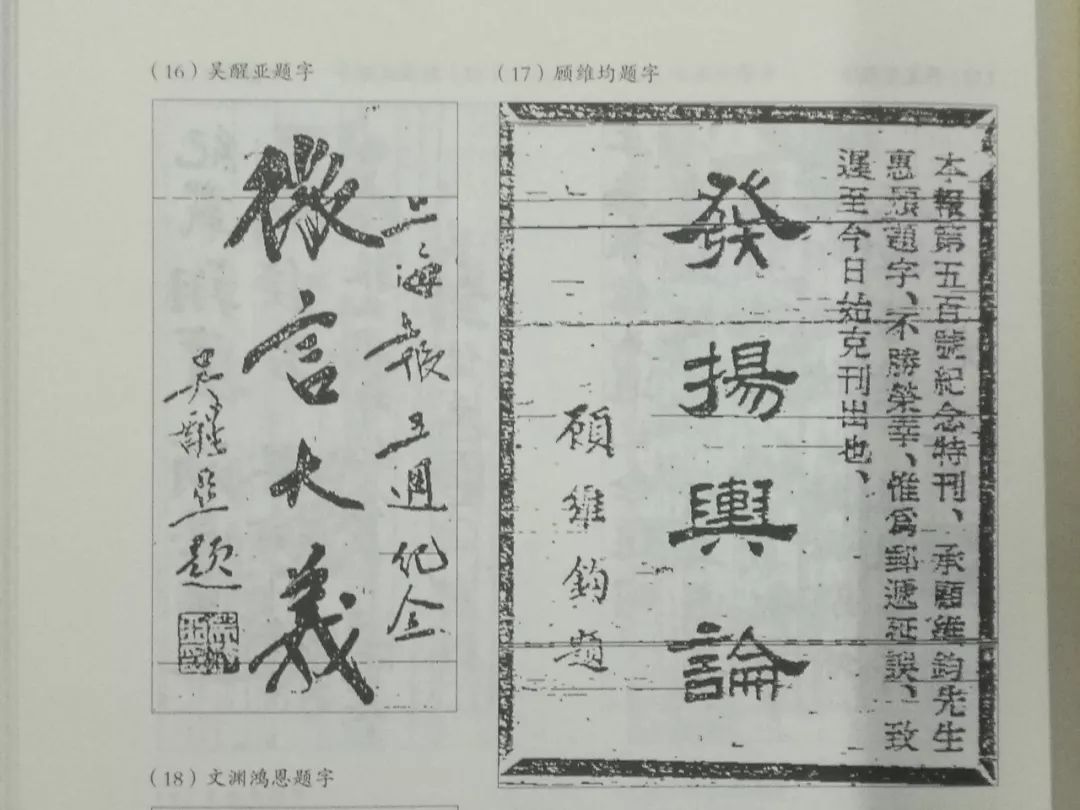 (16) 吴醒亚题字
上海報五週紀念
微言大義
吳醒亞題
(17) 顾维均题字
本報第五百號紀念特刊、承顧維鈞先生
惠頒題字、不勝榮幸、惟爲郵遞延誤、致
遲至今日始克刊出也、
發揚輿論
顧維鈞題
(18) 文渊鸿恩题字